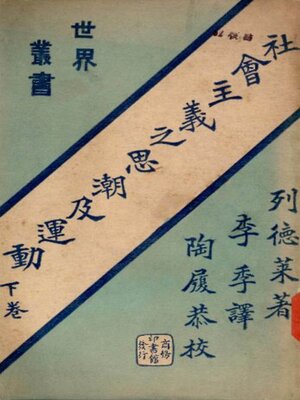 世界
叢書
社會主義之思潮及運動
下卷
列德萊著
李季譯
陶履恭校
商務
印書館
發行